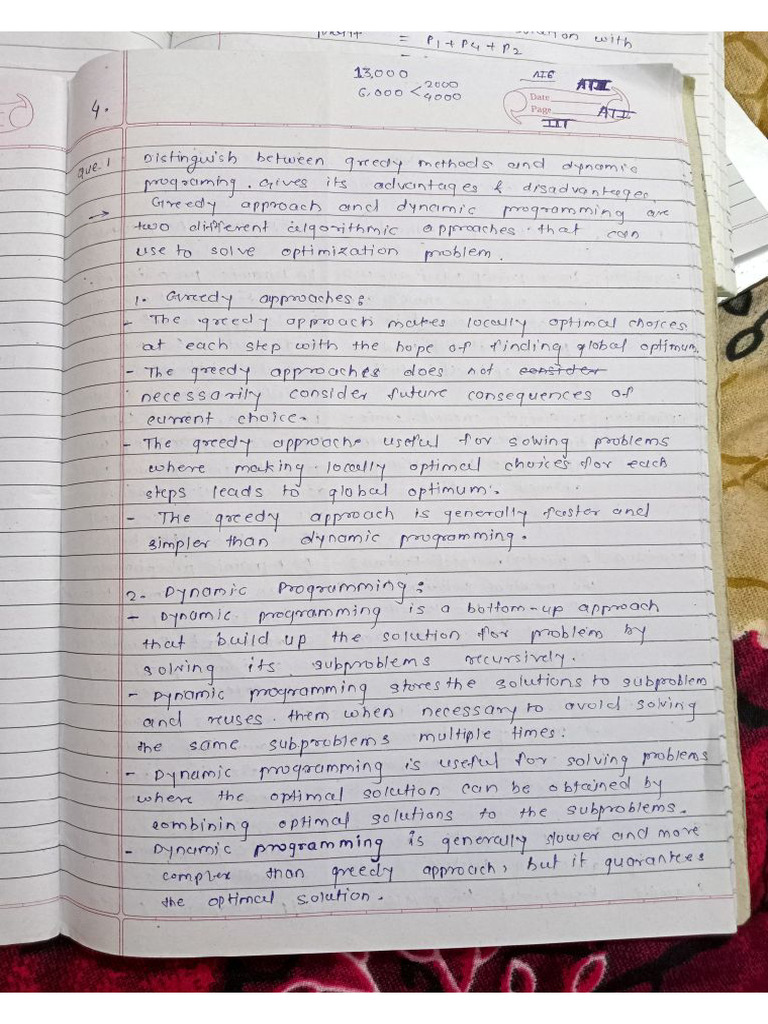 with
= P1 + P4 + P2
=
13,000
6,000 < 2000
4000
AIE
Date
Page
ATI
III
4.
Que. 1 Distinguish between greedy methods and dynamic
programing. Gives its advantages & disadvantages.
→ Greedy approach and dynamic programming are
two different algorithmic approaches that can
use to solve optimization problem.
1. Greedy approaches:
- The greedy approach makes locally optimal choices
at each step with the hope of finding global optimum.
- The greedy approaches does not consider
necessarily consider future consequences of
current choice.
- The greedy approache useful for solving problems
where making locally optimal choices for each
steps leads to global optimum.
- The greedy approach is generally faster and
simpler than dynamic programming.
2. Dynamic Programming:
- Dynamic programming is a bottom-up approach
that build up the solution for problem by
solving its subproblems recursively.
- Dynamic programming stores the solutions to subproblem
and reuses them when necessary to avoid solving
the same subproblems multiple times.
- Dynamic programming is useful for solving problems
where the optimal solution can be obtained by
combining optimal solutions to the subproblems.
- Dynamic programming is generally slower and more
complex than greedy approach, but it guarantees
the optimal solution.